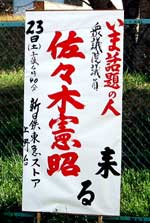 いま話題の人
衆議院議員
佐々木憲昭
来る
23日(土)
新日鉄東芝ストア